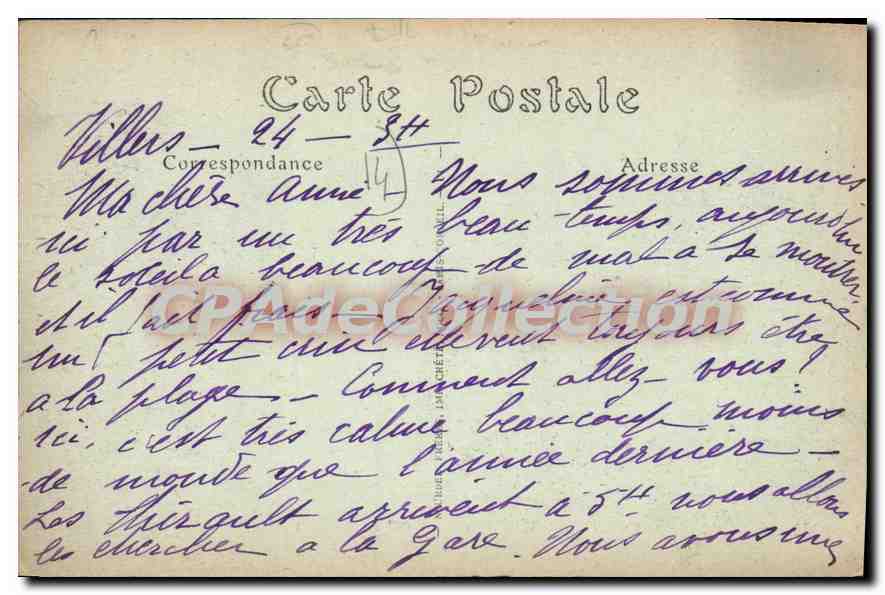 Carte Postale
Villers - 24 - 3H
Correspondance Adresse
14
Ma chère Anne - Nous sommes arrivés
ici par un très beau temps, aujourd'hui
le soleil a beaucoup de mal a se montrer
et il fait frais - Jacqueline est comme
un petit elle veut toujours être
a la plage - Comment allez-vous?
Ici, c'est très calme beaucoup moins
de monde que l'année dernière -
Les Hérault arrivent a 5H nous allons
les chercher a la Gare. Nous avons une
CPAdeCollection